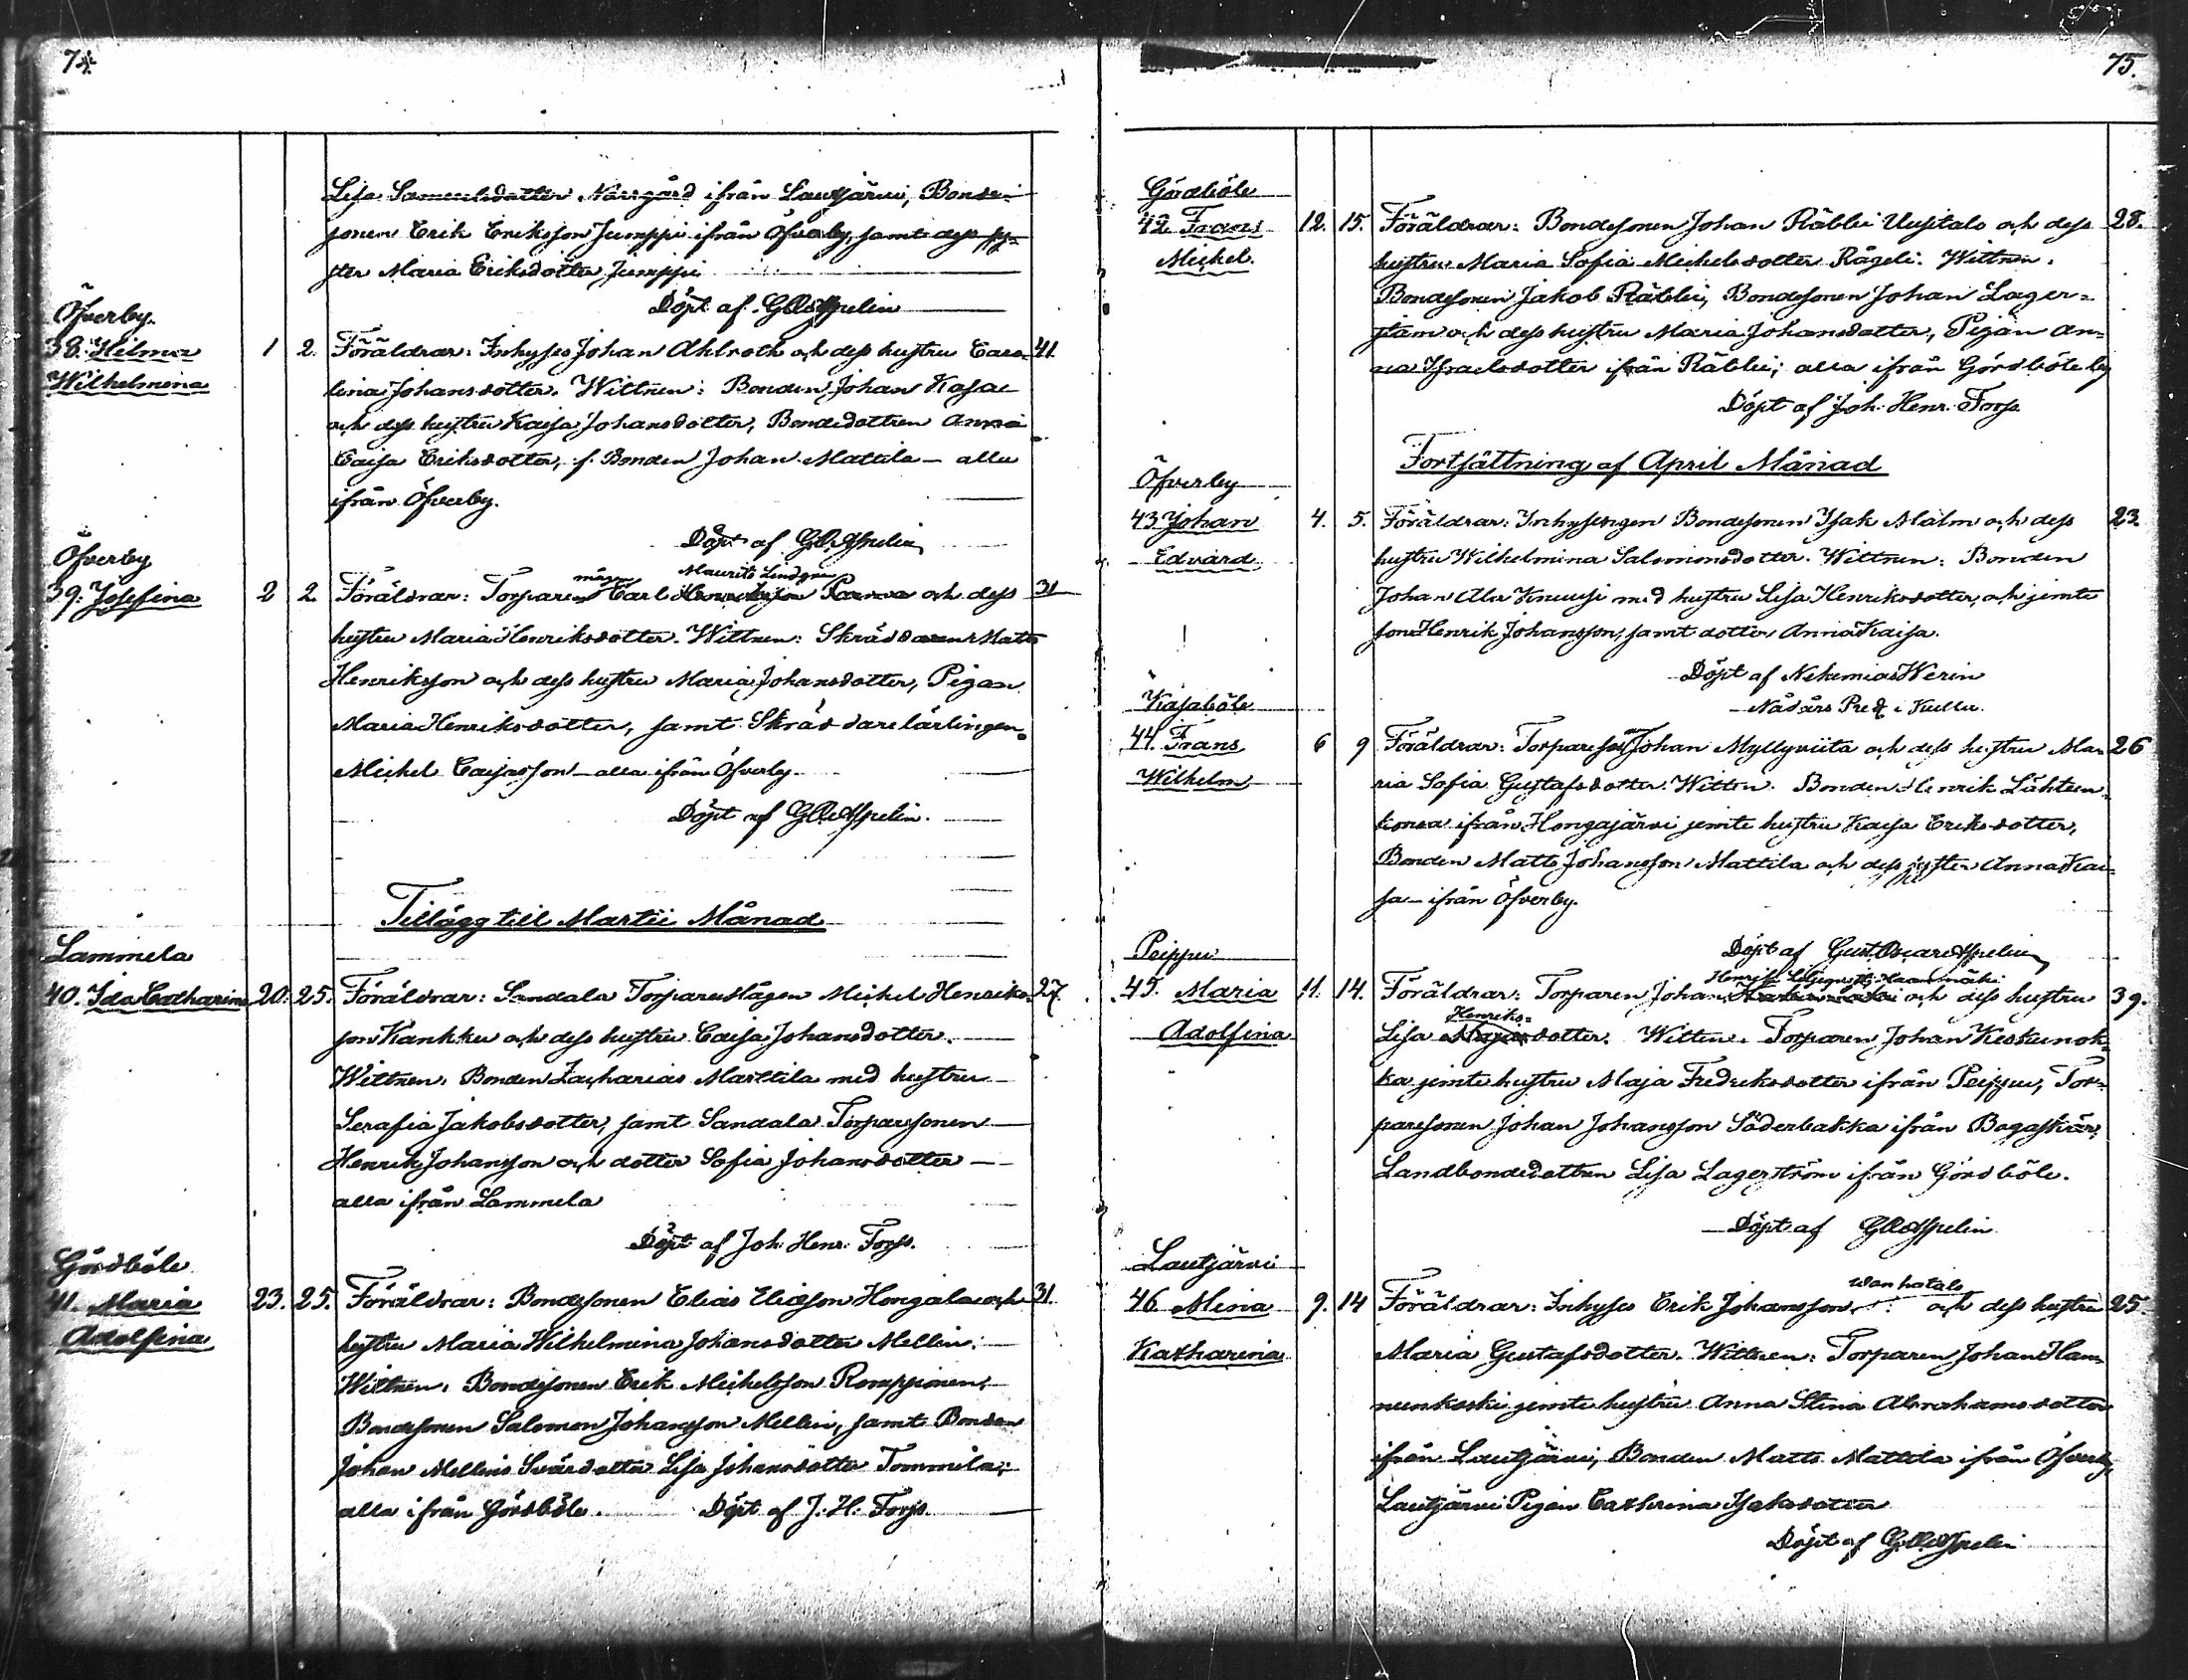 74.
Lisa Samuelsdotter Närrgård ifrån Lautjärvi, Bonde-
sonen Erik Eriksson Jumppi ifrån Öfverby, samt dess sy-
ster Maria Eriksdotter Jumppi
Döpt af G O Aspelin
Öfverby.
38. Hilma 1 2. Föräldrar: Inhyses Johan Ahlroth och dess hustru Caro- 41.
Wilhelmina lina Johansdotter. Wittnen: Bonden Johan Kasa
och dess hustru Kaisa Johansdotter, Bondedottren Anna
Caisa Eriksdotter, f. Bonden Johan Mattila – alla
ifrån Öfverby.
Döpt af G O Aspelin
Öfverby
39. Josefina 2 2. Föräldrar: Torpare mågen Carl Maurits Lindgren och dess 31
hustru Maria Henriksdotter. Wittnen: Skräddaren Matts
Henriksson och dess hustru Maria Johansdotter, Pigan
Maria Henriksdotter, samt Skräddarelärlingen
Michel Caisasson – alla ifrån Öfverby
Döpt af G O Aspelin.
Tillägg till Martii Månad
Lammela
40. Ida Catharina 20. 25. Föräldrar: Sandala Torparemågen Michel Henriks- 27.
son Kankku och dess hustru Caisa Johansdotter.
Wittnen: Bonden Zacharias Marttila med hustru
Serafia Jakobsdotter, samt Sandala Torparesonen
Henrik Johansson och dotter Sofia Johansdotter –
alla ifrån Lammela
Döpt af Joh. Henr. Forss.
Gördböle
41. Maria 23. 25. Föräldrar: Bondesonen Elias Eliasson Hongala och 31.
Adolfina hustru Maria Wilhelmina Johansdotter Mellin.
Wittnen: Bondesonen Erik Michelsson Romppinen,
Bondesonen Salomon Johansson Mellin, samt Bonden
Johan Mellins Svärdotter Lisa Johansdotter Tommila;
alla ifrån Gördböle. Döpt af J. H. Forss.
75.
Gördböle
42. Frans 12. 15. Föräldrar: Bondesonen Johan Räbbi Uusitalo och dess 28.
Michel. hustru Maria Sofia Michelsdotter Rågeli. Wittnen:
Bondesonen Jakob Räbbi, Bondesonen Johan Lager-
stam och dess hustru Maria Johansdotter, Pigan An-
na Israelsdotter ifrån Räbbi; alla ifrån Gördböle by
Döpt af Joh. Henr. Forss.
Fortsättning af April Månad
Öfverby
43. Johan 4. 5. Föräldrar: Inhysingen Bondesonen Isak Malm och dess 23.
Edvard. hustru Wilhelmina Salomonsdotter. Wittnen: Bonden
Johan Ala Knuusi med hustru Lisa Henriksdotter, och jemte
son Henrik Johansson, samt dotter Anna Kaisa.
Döpt af Nehemias Werin
Nådårs Pred. i Kulla.
Kasaböle
44. Frans 6 9 Föräldrar: Torparesonen Johan Myllyviita och dess hustru Ma- 26
Wilhelm ria Sofia Gustafsdotter. Wittn: Bonden Henrik Lähteen-
korva ifrån Hongajärvi jemte hustru Kaisa Eriksdotter,
Bonden Matts Johansson Mattila och dess syster Anna Kai-
sa – ifrån Öfverby.
Döpt af Gust. Oscar Aspelin
Peippu
45. Maria 11. 14. Föräldrar: Torparen Johan Henrik och dess hustru 39.
Adolfina Lisa Henriks-dotter. Wittn: Torparen Johan Keskunok-
ka jemte hustru Maja Fredriksdotter ifrån Peippu, Tor-
paresonen Johan Johansson Söderbakka ifrån Bagaskär,
Landbondedottren Lisa Lagerström ifrån Gördböle.
Döpt af G O Aspelin
Lautjärvi
46. Mina 9. 14 Föräldrar: Inhyses Erik Johansson Wanhatalo och dess hustru 25.
Katharina Maria Gustafsdotter. Wittnen: Torparen Johan Ham-
nunkoski jemte hustru Anna Stina Abrahamsdotter
ifrån Lautjärvi, Bonden Matts Mattila ifrån Öfverby,
Lautjärvi Pigan Cathrina Isaksdotter
Döpt af G O Aspelin